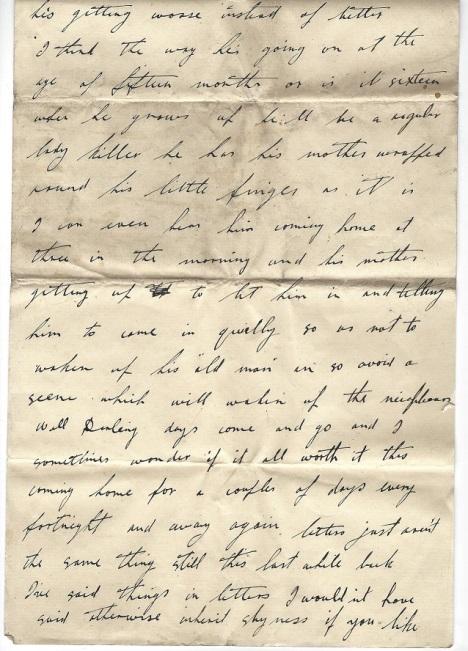 his getting worse instead of better
I think the way he's going on at the
age of fifteen months or is it sixteen
when he grows up he'll be a regular
lady killer he has his mother wrapped
round his little finger as it is
I can even hear him coming home at
three in the morning and his mother
getting up to let him in and telling
him to come in quielly so as not to
waken up his "old man" an so avoid a
scene which will waken up the neighbours
Well Darling days come and go and I
sometimes wonder if it all worth it this
coming home for a couples of days every
fortnight and away again letters just aren't
the same thing still this last while back
I've said things in letters I would'nt have
said otherwise shyness if you like